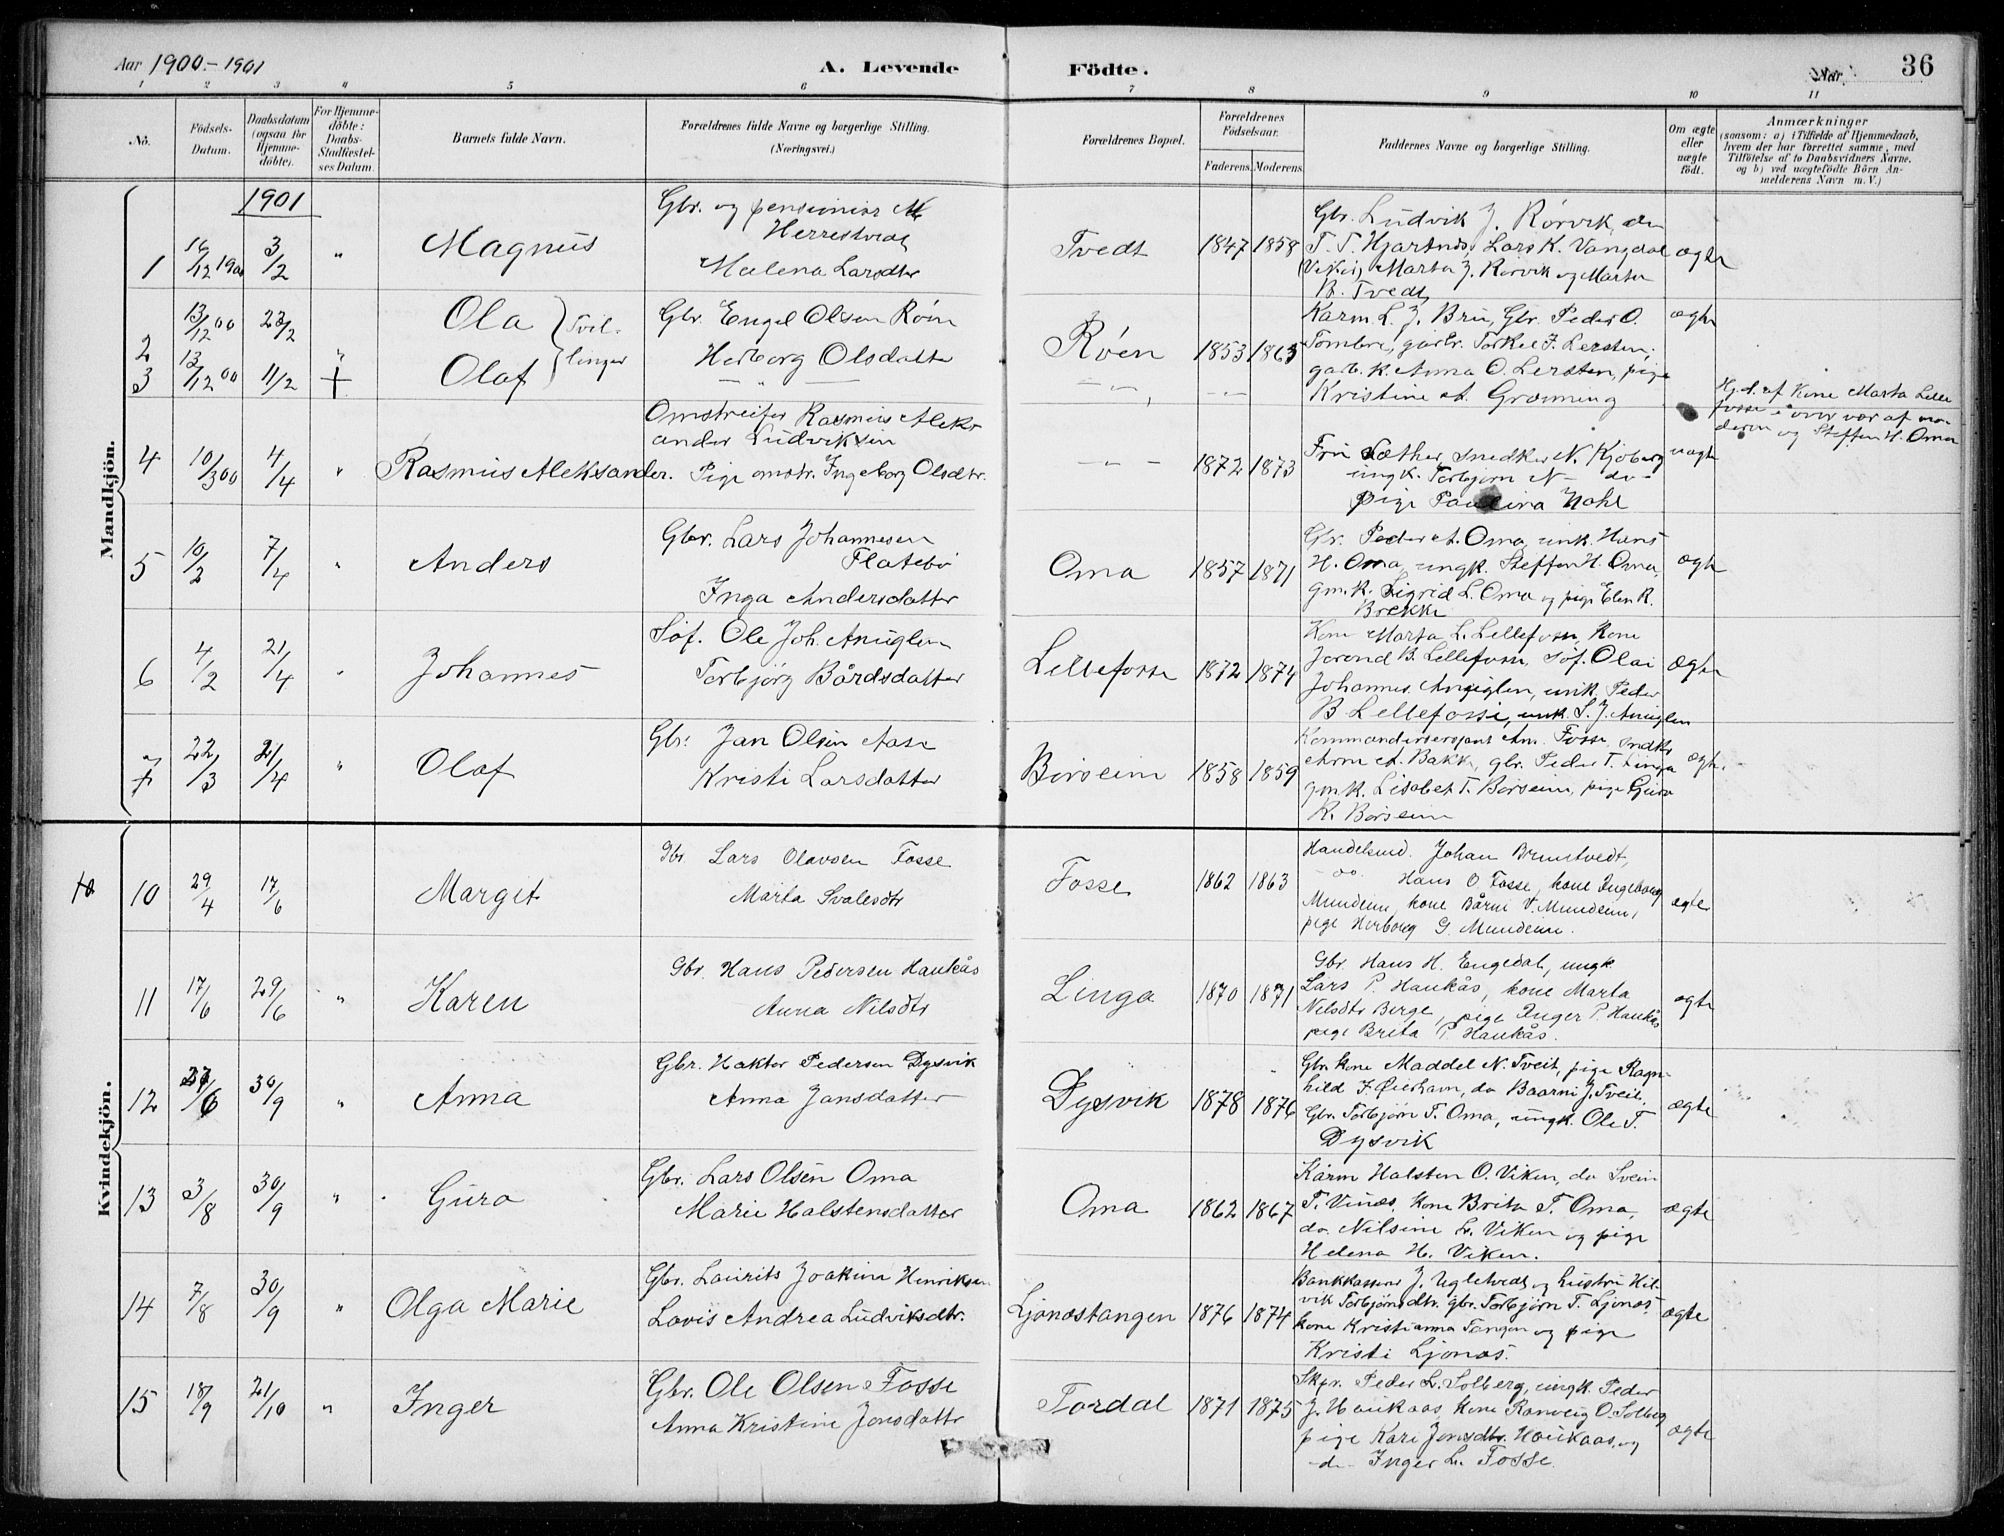 Aar 1900 - 1901 A. Levende Födte. Aar. 36
1 2 3 4 5 6 7 8 9 10 11
No. Födsels-Datum. Daabsdatum (ogsaa for Hjemmedöbte). For Hjemmedöbte: Daabs-Stadfæstelses Datum. Barnets fulde Navn. Forældrenes fulde Navne og borgerlige Stilling. (Næringsvei.) Forældrenes Bopæl. Forældrenes Födselsaar. Faderens. Moderens. Faddernes Navne og borgerlige Stilling. Om ægte eller uægte födt. Anmærkninger (saasom: a) i Tilfælde af Hjemmedaab, hvem der har forrettet samme, med Tilföielse af to Daabsvidners Navne. og b) ved uægtefödte Börn Anmelderens Navn m. V.)
Mandkjön.
1901
1 16/12 1900 3/2 " Magnus
Gbr. og pensionist
Herrestvedt
Malena Larsdtr
Tvedt 1847 1858
Gbr. Ludvik J. Rørvik, do
Lars K. Vangdal
Marta J. Rørvik og Marta
B. Tvedt
ægte
2 13/12 00 23/2 " Ola } Tvil-
3 13/12 00 11/2 + Olaf } linger
Gbr. Engel Olsen Röen
Herborg Olsdatter
Röen 1853 1865
Karm. L. J. Bru, Gbr. Peder O.
Tombre, garbr. Torkel J. Lersten,
garb. k. Anna O. Lersten, pige
Kristine A. Gravning
ægte
Hj.d. af Kone Marta Lille
fosse i over vær af mo-
deren og Steffen H. Oma
4 10/3 00 4/4 " Rasmus Aleksander.
Omstreifer Rasmus Aleks
ander Ludviksen
Pige omstr. Ingeborg Olsdtr.
- " - 1872 1873
Fru Sæther, snedker N. Kjoberg
ungk. Torbjørn N - do -
pige Paulina Hohl
uægte
5 10/2 7/4 " Anders
Gbr. Lars Johannesen
Flatebö
Inga Andersdatter
Oma 1857 1871
Gbr. Peder A. Oma, unk. Hans
H. Oma, ungk. Steffen H. Oma,
gm. k. Sigrid L. Oma og pige Elen R.
Brekke
ægte
6 4/2 21/4 " Johannes
Söf. Ole Joh. Anuglen
Torbjörg Bårdsdatter
Lillefosse 1872 1874
Kone Marta L. Lillefosse, Kone
Jorend B. Lillefosse, söf. Olai
Johannes. Anuglen, unk. Peder
B Lillefosse, unk. S. J. Anuglen
Ægte
7 22/3 21/4 " Olaf
Gbr. Jan Olsen Aase
Kristi Larsdatter
Börseim 1858 1859
Kommandersersjant Am. Fosse, snedker
Arne A. Bakk, gbr. Peder T. Linga
gm. k. Lisabet T. Börseim, pige Guro
K. Börseim
ægte.
Kvindekjön.
10 29/4 17/6 Margit
Gbr. Lars Olavsen Fosse
Marta Svalesdtr
Fosse 1862 1863
Handelsmd. Johan Brunstvedt,
do. Hans O Fosse, kone Ingeborg
Mundeim, kone Bårni V. Mundeim,
pige Herborg G. Mundeim.
ægte
11 17/6 29/6 " Karen
Gbr. Hans Pedersen Haukås
Anna Nilsdtr
Linga 1870 1871
Gbr. Hans H. Engedal, ungk.
Lars P. Haukås, kone Marta
Nilsdtr Berge, pige Inger P. Haukås
pige Brita P Haukås.
ægte
12 27/6 30/9 " Anna
Gbr. Haktor Pedersen Dysvik
Anna Jansdatter
Dysvik 1878 1876
Gbr. kone Maddel N. Tveit, pige Ragn-
hild F. Øierhavn, do Baarni J. Tveit,
Gbr. Torbjørn T. Oma, ungk. Ole T.
Dysvik
ægte
13 3/8 30/9 " Guro
Gbr. Lars Olsen Oma
Marie Halstensdatter
Oma 1862 1867
Kårm Halsten O. Viken, do Svein
T. Vinæs, kone Brita T. Oma,
do. Nilsine L. Viken og pige
Helena H. Viken.
ægte
14 7/8 30/9 " Olga Marie
Gbr. Laurits Joakim Henriksen
Lovis Andrea Ludviksdtr.
Ljonæstangen 1876 1874
Bankkasserer J. Ugletvedt og hustru Hel-
vik Torbjørnsdtr. gbr. Torbjørn T. Ljonæs,
kone Kristianna Tangen og pige
Kristi Ljonæs.
ægte
15 18/9 21/10 " Inger
Gbr. Ole Olsen Fosse
Anna Kristine Jonsdatter
Tordal 1871 1875
Skpr. Peder L. Solberg, ungk. Peder
J. Haukaas, kone Ranveig O. Solberg
pige Kari Jonsdtr. Haukaas, og
-d- Inger L. Fosse.
ægte